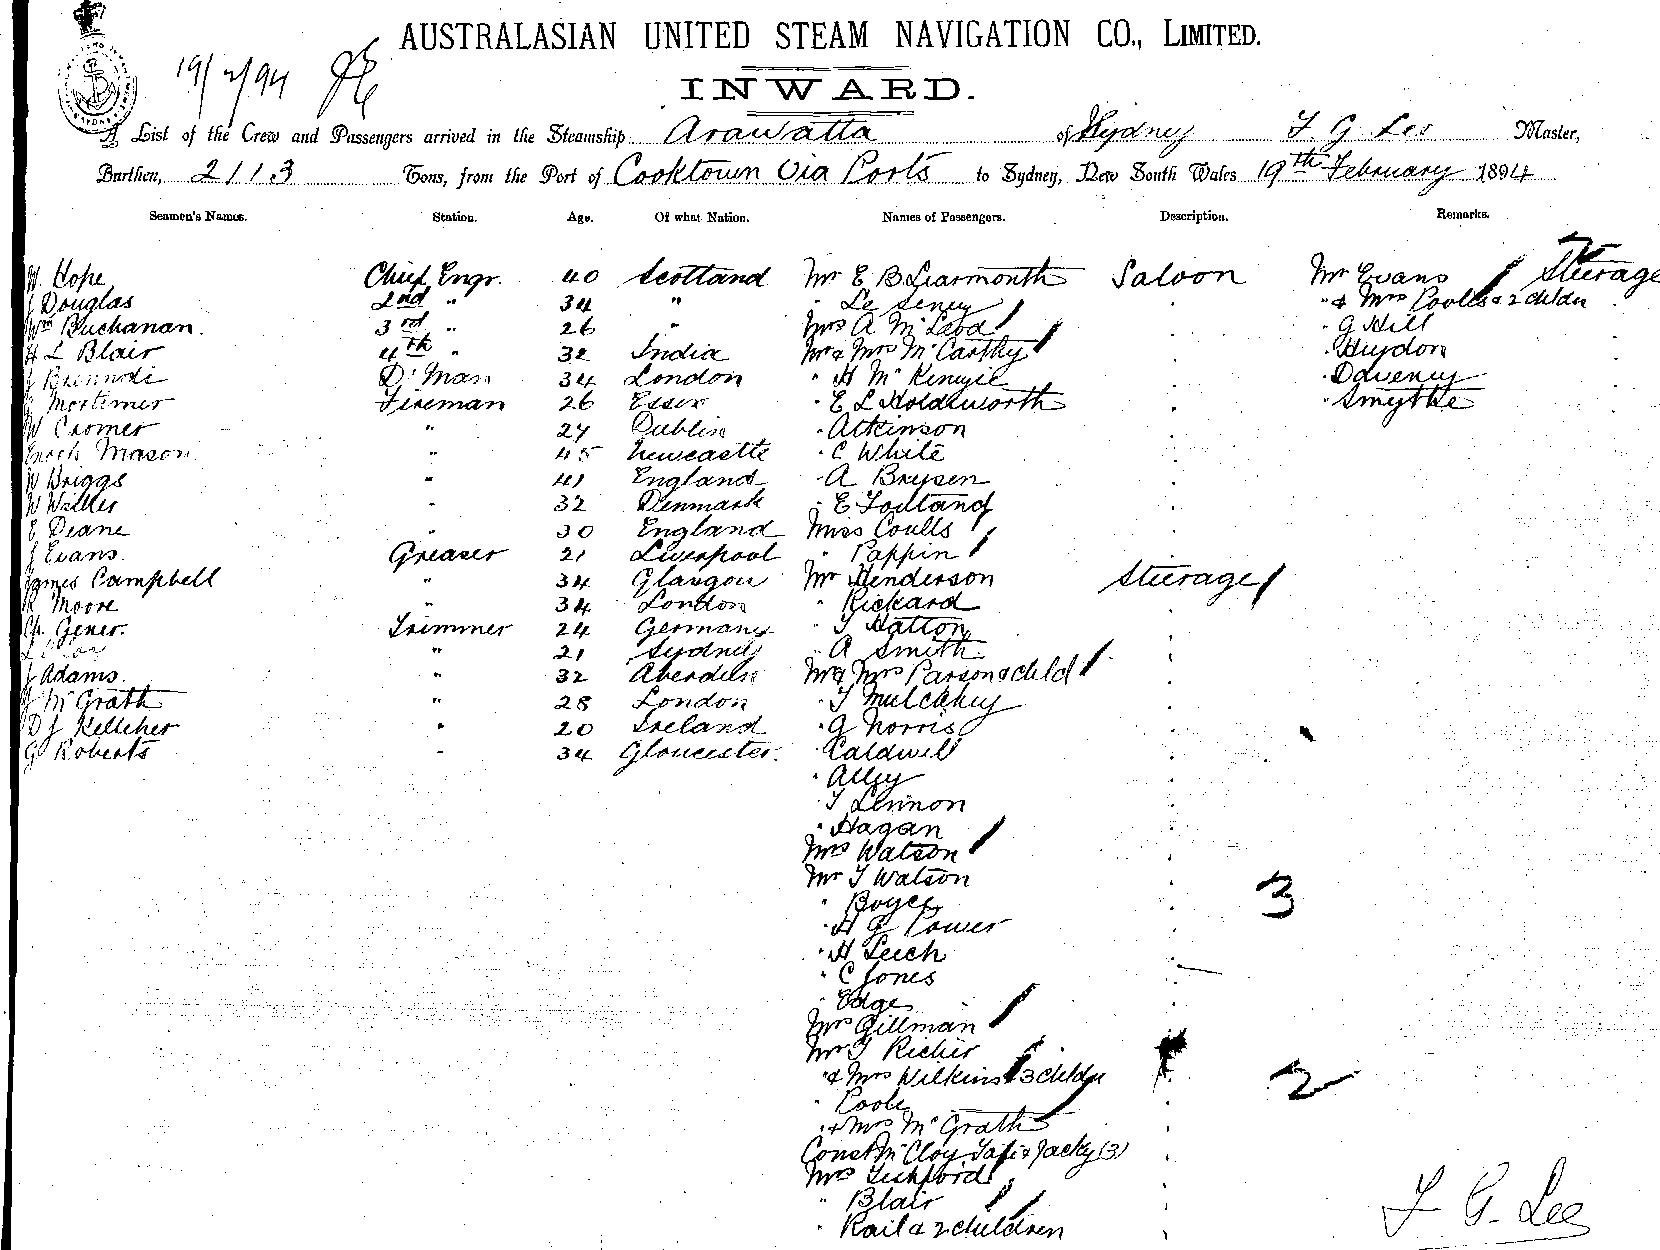 AUSTRALASIAN UNITED STEAM NAVIGATION CO., LIMITED.
19/2/94
INWARD.
A List of the Crew and Passengers arrived in the Steamship Arawatta of Sydney F. G Lee Master,
Burthen, 2113 Tons, from the Port of Cooktown Via Ports to Sydney, New South Wales 19th February 1894
Seamen's Names. Station. Age. Of what Nation. Names of Passengers. Description. Remarks.
Hope Chief Engr. 40 Scotland Mr E B Learmonth Saloon Mr Evans Steerage
J Douglas 2nd " 34 " " " & Mrs Coolls & 2 childn
Wm Buchanan. 3rd " 26 " Mrs A McLeod " G Hill
H L Blair 4th " 32 India Mr & Mrs McCarthy " Huydon
J D'Man 34 London " H McKenzie
Mortimer Fireman 26 Essex " E L Holdsworth " Smythe
W Cromer " 27 Dublin " Atkinson
Enoch Mason " 45 Newcastle " C White
W Briggs " 41 England " A Brysen
W " 32 Denmark " E
E Deane " 30 England Miss Coulls
J Evans. Greaser 21 Liverpool " Pappin
James Campbell " 34 Glasgow Mr Henderson Steerage
R Moore " 34 London " Rickard
Trimmer 24 Germany " T Hatton
" 21 Sydney " A Smith
J Adams. " 32 Aberdeen Mr & Mrs Parson & child
J McGrath " 28 London " T Mulcahey
D J Kelleher " 20 Ireland " G Norris
G Roberts " 34 Gloucester. " Caldwell
" Alley
" T Lennon
" Hagan
Mrs Watson
Mr T Watson
" Boyce
3
" H G Power
" H Leech
" C Jones
" Edge
Mrs Gillman
Mr T Richer
" & Mrs Wilkins & 3 childn
2
" Poole
" & Mrs McGrath
Const McCloy & Jacky (3)
Mrs
" Blair
" Rail & 2 children
F G. Lee